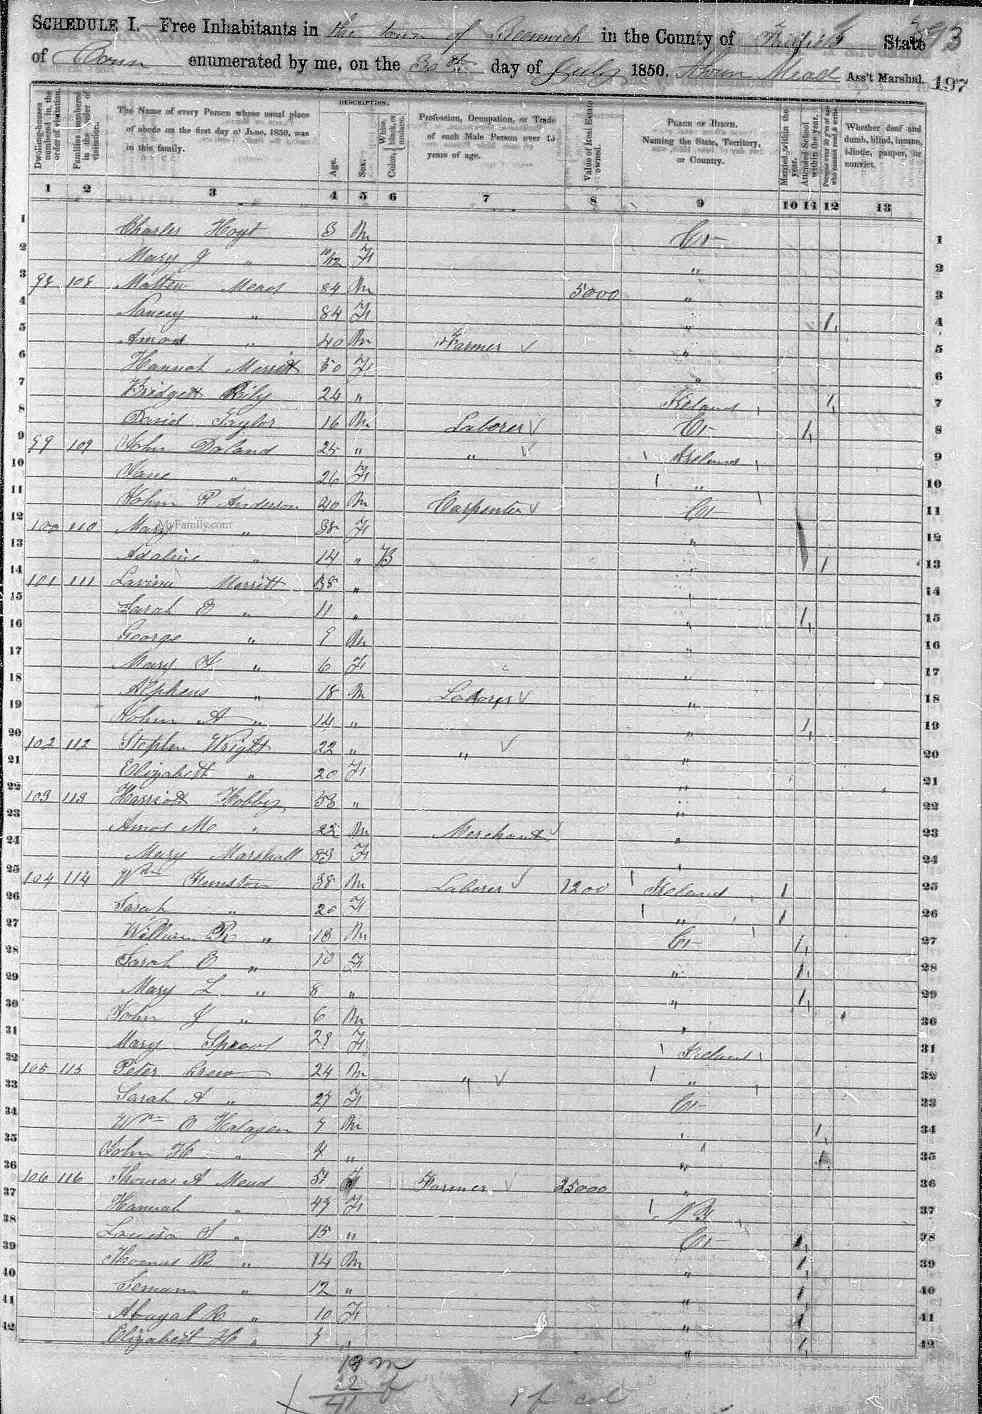 SCHEDULE I.—Free Inhabitants in the town of Greenwich in the County of Fairfield State 393
of Conn enumerated by me, on the 30th day of July 1850. Mead Ass't Marshal. 197
DESCRIPTION.
Dwelling-houses numbered in the order of visitation.
Families numbered in the order of visitation.
The Name of every Person whose usual place of abode on the first day of June, 1850, was in this family.
Age.
Sex.
Color, White, black, or mulatto.
Profession, Occupation, or Trade of each Male Person over 15 years of age.
Value of Real Estate owned.
Place of Birth. Naming the State, Territory, or Country.
Married within the year.
Attended School within the year.
Persons over 20 y'rs of age who cannot read & write.
Whether deaf and dumb, blind, insane, idiotic, pauper, or convict.
1 2 3 4 5 6 7 8 9 10 11 12 13
1 Charles Hoyt 3 M Ct 1
2 Mary J " 10/12 F " 2
3 98 108 Mead 84 M 5000 " 3
4 Nancy " 84 F " 1 4
5 Amos " 40 M Farmer " 5
6 Hannah Merritt 50 F " 6
7 Bridgett Rily 24 " Ireland 1 7
8 David Taylor 16 M Laborer Ct 1 8
9 99 109 John Doland 25 " " Ireland 9
10 Jane " 26 F " 10
11 John P Anderson 40 M Carpenter Ct 11
12 100 110 Mary " 38 F " 12
MyFamily.com
13 Adaline " 14 " B " 1 13
14 101 111 Lavina Merritt 38 " " 14
15 Sarah E " 11 " " 1 15
16 George " 9 M " 16
17 Mary " 6 F " 17
18 Alpheus " 18 M Laborer " 18
19 John A " 14 " " 1 19
20 102 112 Stephen Wright 22 " " " 20
21 Elizabeth " 20 F " 21
22 103 113 Harriott Hobby 58 " " 22
23 Amos M " 22 M Merchant " 23
24 Mary Marshall 83 F " 24
25 104 114 Wm 38 M Laborer 1200 Ireland 1 25
26 Sarah " 20 F " 1 26
27 William R " 13 M Ct 1 27
28 Sarah E " 10 F " 1 28
29 Mary L " 8 " " 1 29
30 John J " 6 M " 30
31 Mary 28 F Ireland 31
32 105 115 Peter 24 M " " 32
33 Sarah A " 27 F Ct 33
34 Wm O M " 1 34
35 John H " " " 35
36 106 116 Thomas A Mead 51 Farmer 25000 " 36
37 Hannah " 47 F N Y 37
38 Louisa S " 15 " Ct 1 38
39 Thomas R " 14 M " 1 39
40 " 12 " " 1 40
41 Abagal R " 10 F " 1 41
42 Elizabeth H " " " 1 42
19 m
22 f
41
1 f col